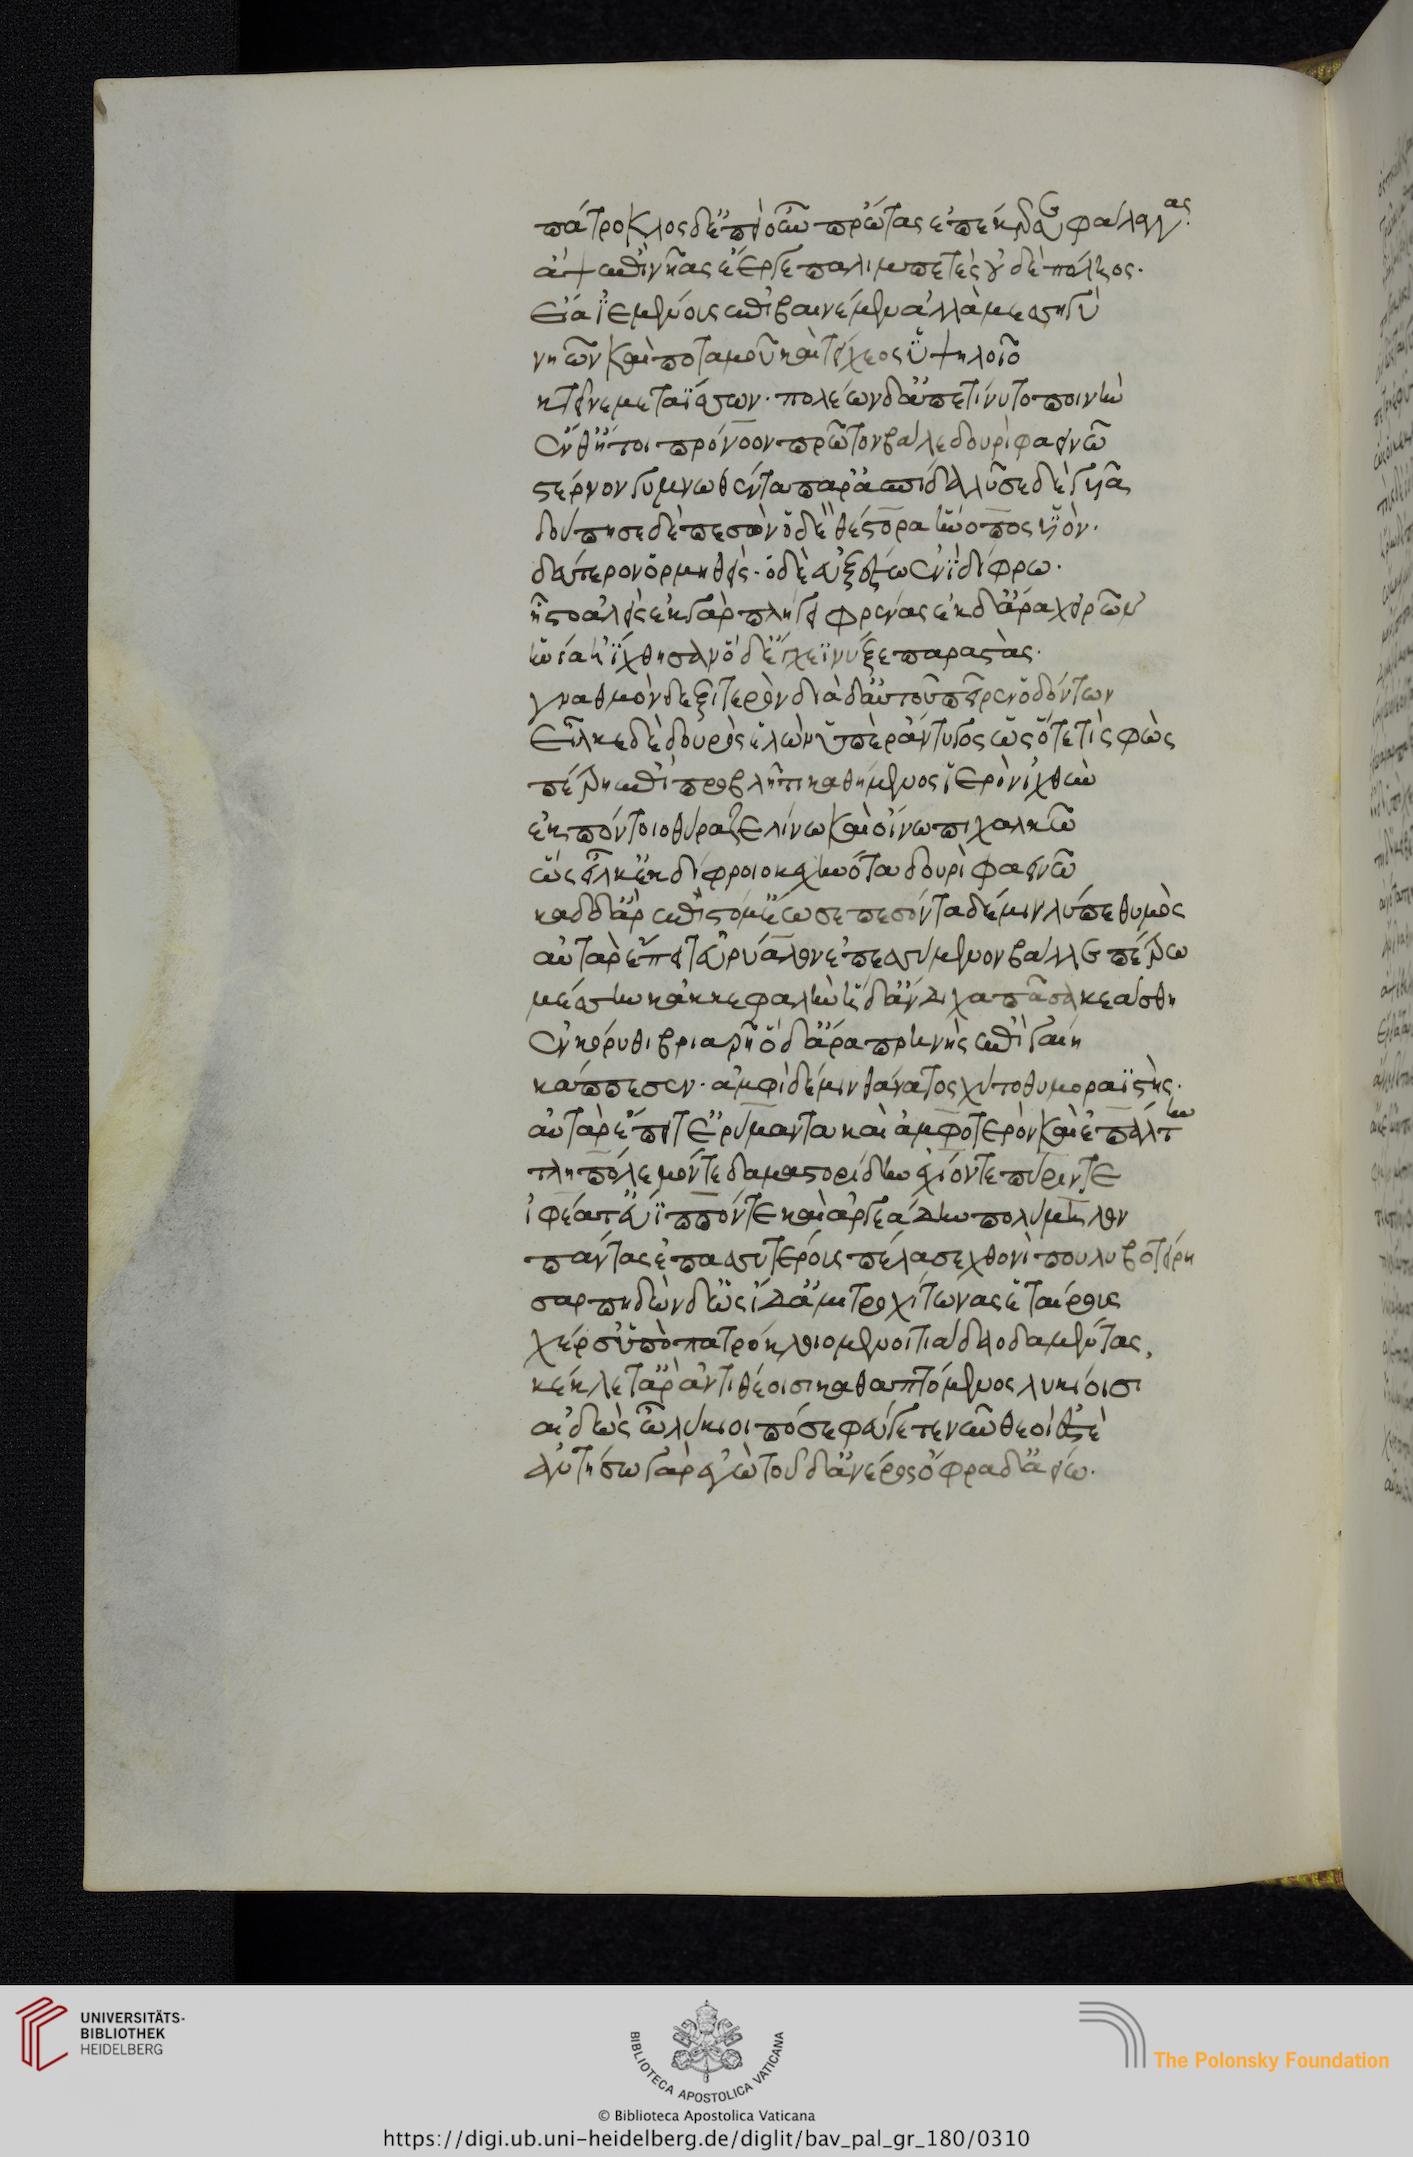 πάτροκλος δ' ἐπεὶ οὖν πρώτας ἐπέκερσε φάλαγγας.
ἀψ ἐπὶ νῆας ἔεργε παλιμπετὲς οὐδὲ πόληος.
εἴα ἱεμένοις ἐπιβαινέμεν ἀλλὰ μεσηγὺ
νηῶν καὶ ποταμοῦ καὶ τείχεος ὑψηλοῖο
κτεῖνε μεταΐσσων. πολέων δ' ἀπετίνυτο ποινὴν
ἔνθ' ἤτοι πρόνοον πρῶτον βάλε δουρὶ φαεινῶ
στέρνον γυμνωθέντα παρ' ἀσπίδα λῦσε δὲ γυῖα
δούπησε δὲ πεσὼν ὁ δὲ θέστορα ἤνοπος υἱὸν.
δεύτερον ὁρμηθεὶς. ὁ δὲ εὐξέστω ἐνὶ δίφρω.
ἧστο ἀλεὶς ἐκ γὰρ πλήγει φρένας ἐκ δ' ἄρα χειρῶν
ἡνία ἠίχθησαν ὁ δ' ἔγχεϊ νύξε παραστὰς.
γναθμὸν δεξιτερὸν διὰ δ' αὐτοῦ πεῖρεν ὀδόντων
εἷλκε δὲ δουρὸς ἑλὼν ὑπὲρ ἄντυγος ὡς ὅτε τὶς φὼς
πέτρη ἐπὶ προβλῆτι καθήμενος ἱερὸν ἰχθὺν
ἐκ πόντοιο θύραζε λίνω καὶ οἴνωπι χαλκῶ
ὣς εἷλκ' ἐκ δίφροιο κεχηνότα δουρὶ φαεινῶ
καδδ' ἄρ ἐπὶ στόμ' ἔωσε πεσόντα δέ μιν λύπε θυμὸς
αὐτὰρ ἔπειτ' εὐρύαλον ἐπεσσύμενον βάλλε πέτρω
μέσην κὰκ κεφαλὴν ἡ δ' ἄνδιχα πᾶσα κεάσθη
ἐν κόρυθι βριαρῆ ὁ δ' ἄρα πρηνὴς ἐπὶ γαίη
κάππεσεν. ἀμφὶ δέ μιν θάνατος χύτο θυμοραϊστὴς.
αὐτὰρ ἔπειτ' ἐρύμαντα καὶ ἀμφοτερὸν καὶ ἐπάλτην
τληπόλεμόν τε δαμαστορίδην ἐχίον τε πύριν τε
ἰφέα τ' εὔιππόν τε καὶ ἀργεάδην πολύμηλον
πάντας ἐπασσυτέροις πέλασε χθονὶ πουλυβοτείρη
σαρπηδὼν δ' ὡς ἴδ' ἀμιτροχίτωνας ἑταίρους
χέρσ' ὑπὸ πατρόκλοιο μενοιτιάδαο δαμέντας,
κέκλετ' ἄρ' ἀντιθέοισι καθαπτόμενος λυκίοισι
αἰδὼς ὦ λύκιοι πόσε φεύγετε νῦν θεοὶ ἐστὲ
ἀντήσω γὰρ ἐγὼ τοῦδ' ἀνέρος ὄφρα δαείω.
UNIVERSITÄTS-
BIBLIOTHEK
HEIDELBERG
BIBLIOTECA APOSTOLICA VATICANA
The Polonsky Foundation
© Biblioteca Apostolica Vaticana
https://digi.ub.uni-heidelberg.de/diglit/bav_pal_gr_180/0310